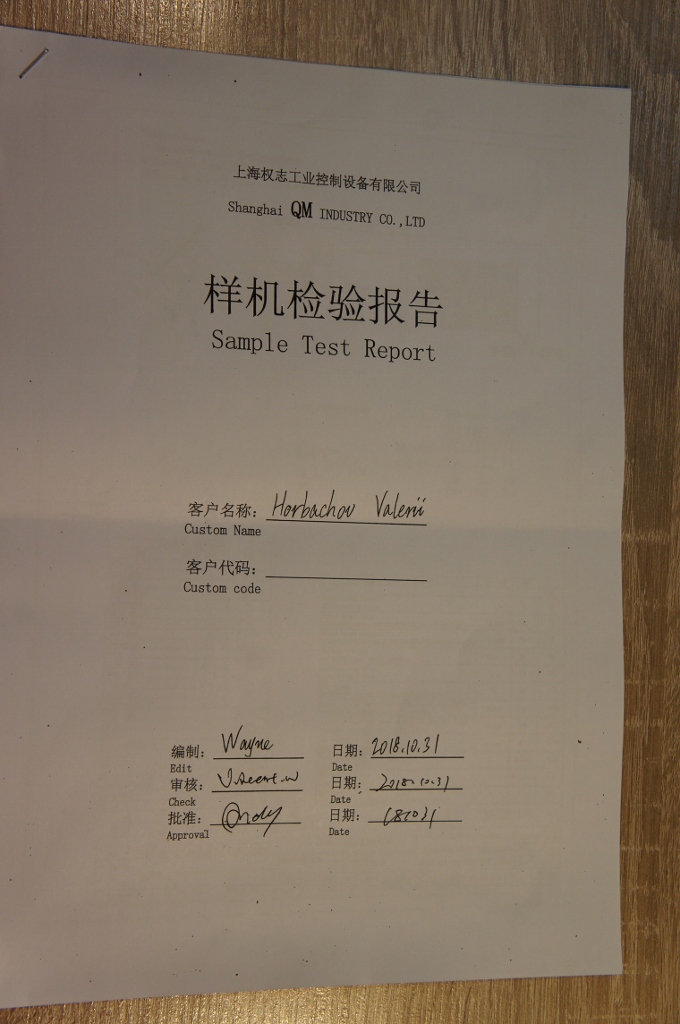 上海权志工业控制设备有限公司
Shanghai QM INDUSTRY CO.,LTD
样机检验报告
Sample Test Report
客户名称: Horbachov Valerii
Custom Name
客户代码:
Custom code
编制: Wayne 日期: 2018.10.31
Edit Date
审核: 日期: 2018.10.31
Check Date
批准: Andy 日期: 181031
Approval Date